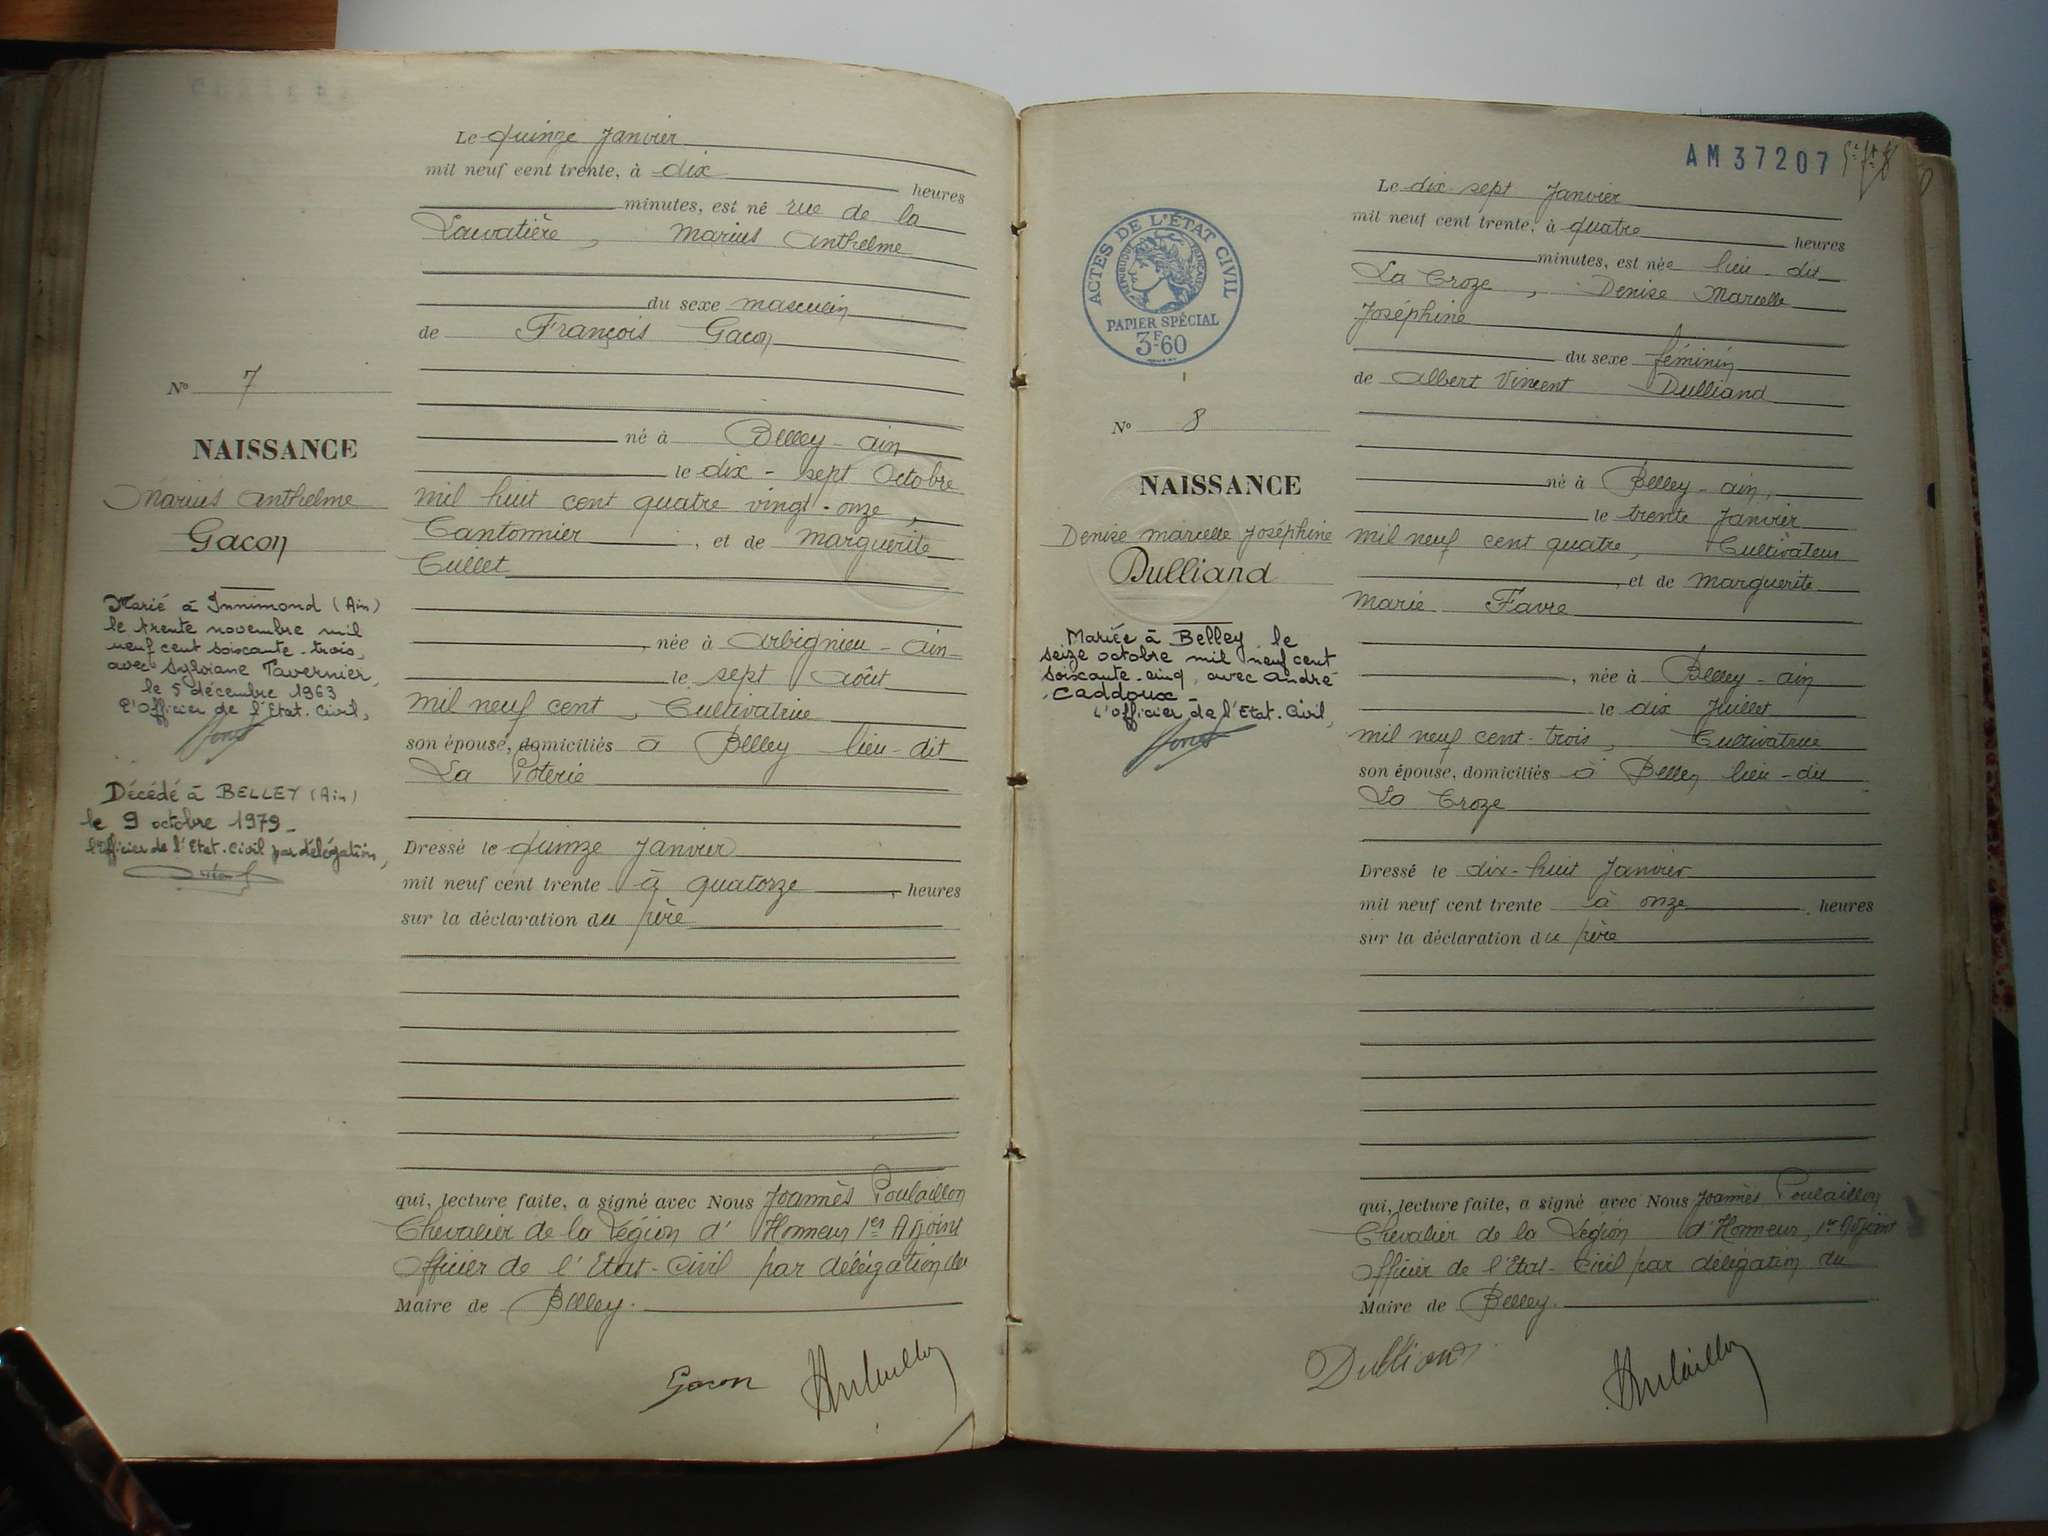 Le quinze Janvier
mil neuf cent trente, à dix heures
minutes, est né rue de la
Lavatière, Marius Anthelme
du sexe masculin
de François Gacon
né à Belley - Ain
le dix - sept Octobre
mil huit cent quatre vingt - onze,
Cantonnier, et de Marguerite
Cullet
née à Arbignieu - Ain -
le sept Août
mil neuf cent, Cultivatrice
son épouse, domiciliés à Belley lieu - dit
La Poterie
Dressé le quinze Janvier
mil neuf cent trente à quatorze, heures
sur la déclaration du père
qui, lecture faite, a signé avec Nous Joannès Poulaillon
Chevalier de la Légion d'Honneur 1er Adjoint
Officier de l'Etat - Civil par délégation du
Maire de Belley.
Gacon
Nº 7
NAISSANCE
Marius Anthelme
Gacon
Marié à Innimond (Ain)
le trente novembre mil
neuf cent soixante - trois,
avec Sylviane Tavernier,
le 5 décembre 1963
L'Officier de l'Etat. Civil,
Décédé à BELLEY (Ain)
le 9 octobre 1979 -
l'Officier de l'Etat. Civil par délégation,
AM 37207
Le dix - sept Janvier
mil neuf cent trente, à quatre heures
minutes, est née lieu - dit
La Croze, Denise Marcelle
Joséphine
du sexe féminin
de Albert Vincent Dulliand
né à Belley - Ain,
le trente Janvier
mil neuf cent quatre, Cultivateur
, et de Marguerite
Marie Favre
, née à Belley - Ain
le dix Juillet
mil neuf cent - trois, Cultivatrice
son épouse, domiciliés à Belley lieu - dit
La Croze
Dressé le dix - huit Janvier
mil neuf cent trente à onze heures
sur la déclaration du père
qui, lecture faite, a signé avec Nous Joannès Poulaillon
Chevalier de la Légion d'Honneur, 1er Adjoint
Officier de l'Etat - Civil par délégation du
Maire de Belley.
Dulliand
ACTES DE L'ÉTAT CIVIL
RÉPUBLIQUE FRANÇAISE
PAPIER SPÉCIAL
3F60
Nº 8
NAISSANCE
Denise Marcelle Joséphine
Dulliand
Mariée à Belley le
seize octobre mil neuf cent
soixante - cinq, avec André
Caddoux -
L'Officier de l'Etat. Civil,